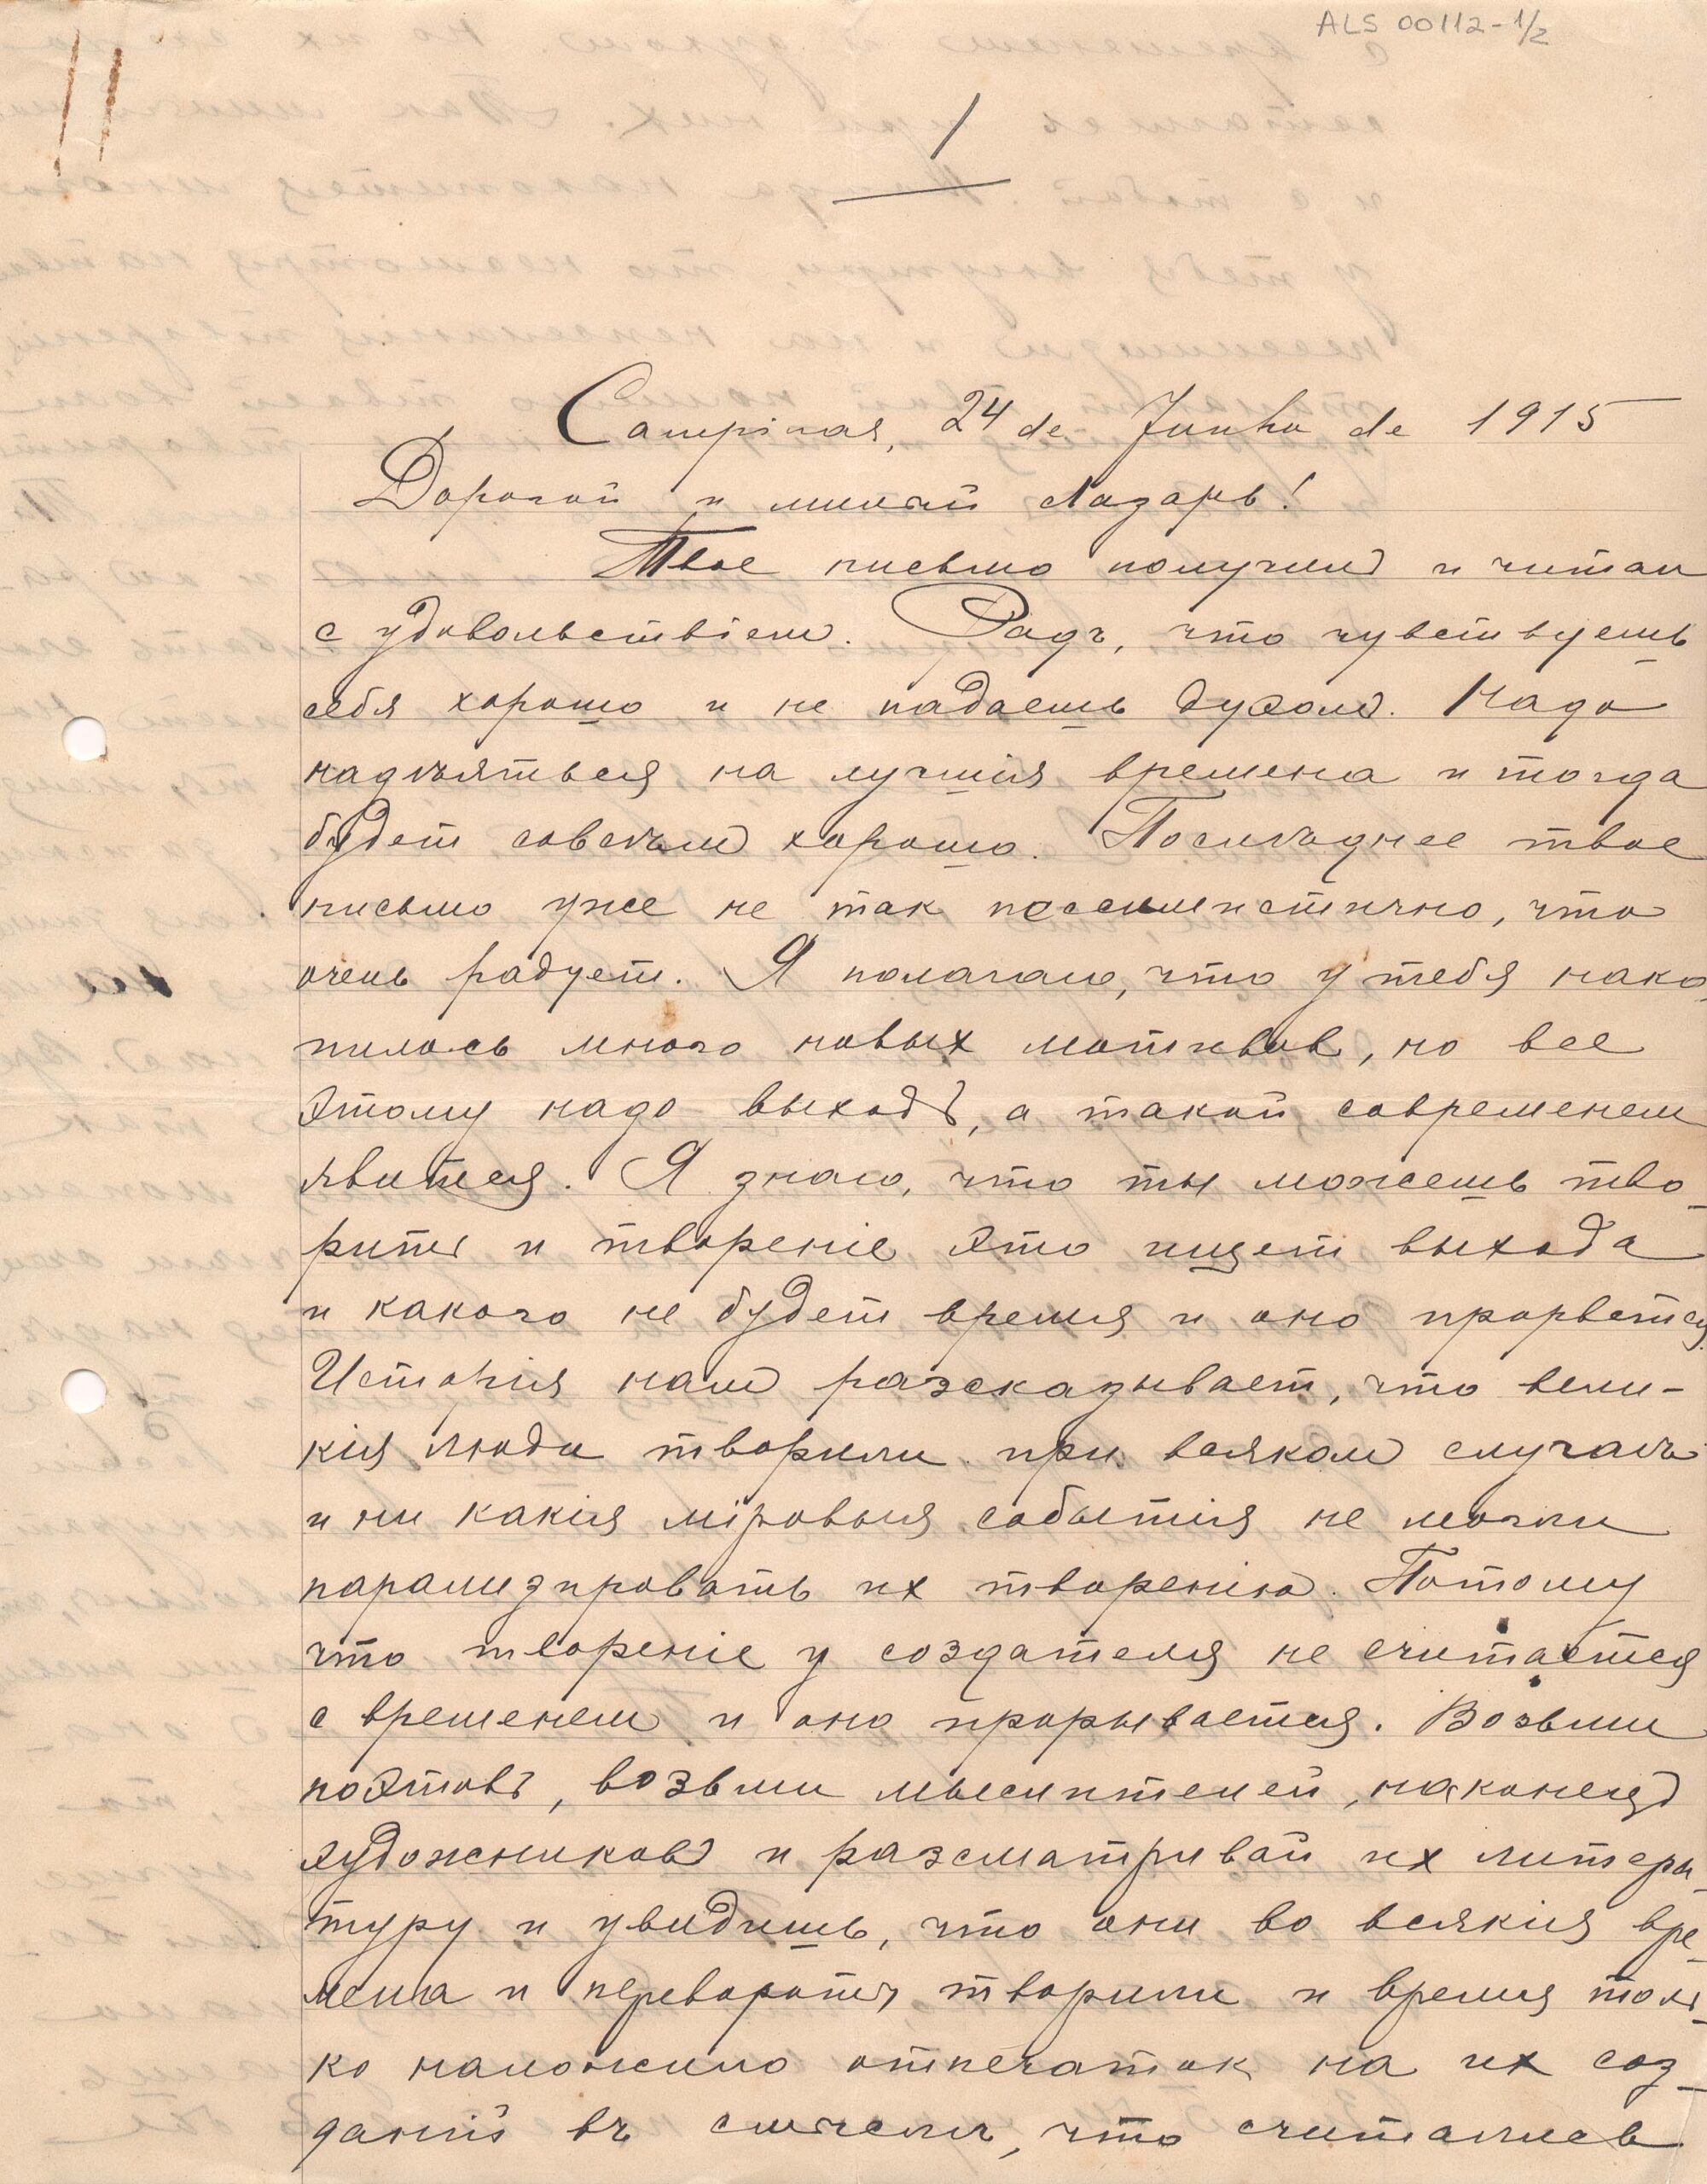 ALS 00112-1/2
1
Campinas, 24 de Junho de 1915
Дорогой и милый Лазарь!
Твое письмо получилъ и читал
с удовольствіем. Радъ, что чувствуешь
себя хорошо и не падаешь духомъ. Надо
надѣяться на лучшія времена и тогда
будет совсѣмъ хорошо. Послѣднее твое
письмо уже не так пессимистично, что
очень радует. Я полагаю, что у тебя нако
пилось много новых мотивов, но все
этому надо выходъ, а такой современем
явится. Я знаю, что ты можешь тво-
рить и твореніе это ищет выхода
и какого не будет время и оно прорвется.
Исторія намъ разсказывает, что вели-
кія люди творили при всяком случаѣ
и ни какія міровыя событія не могли
парализировать их творенію. Потому
что твореніе у создателя не считается
с временем и оно прорывается. Возьми
поэтовъ, возьми мыслителей, наконецъ
художниковъ и разсматривай их литера-
туру и увидишь, что они во всякія вре-
мена и перевороты творили и время толь-
ко наложило отпечаток на их соз-
даній въ смыслѣ, что считались